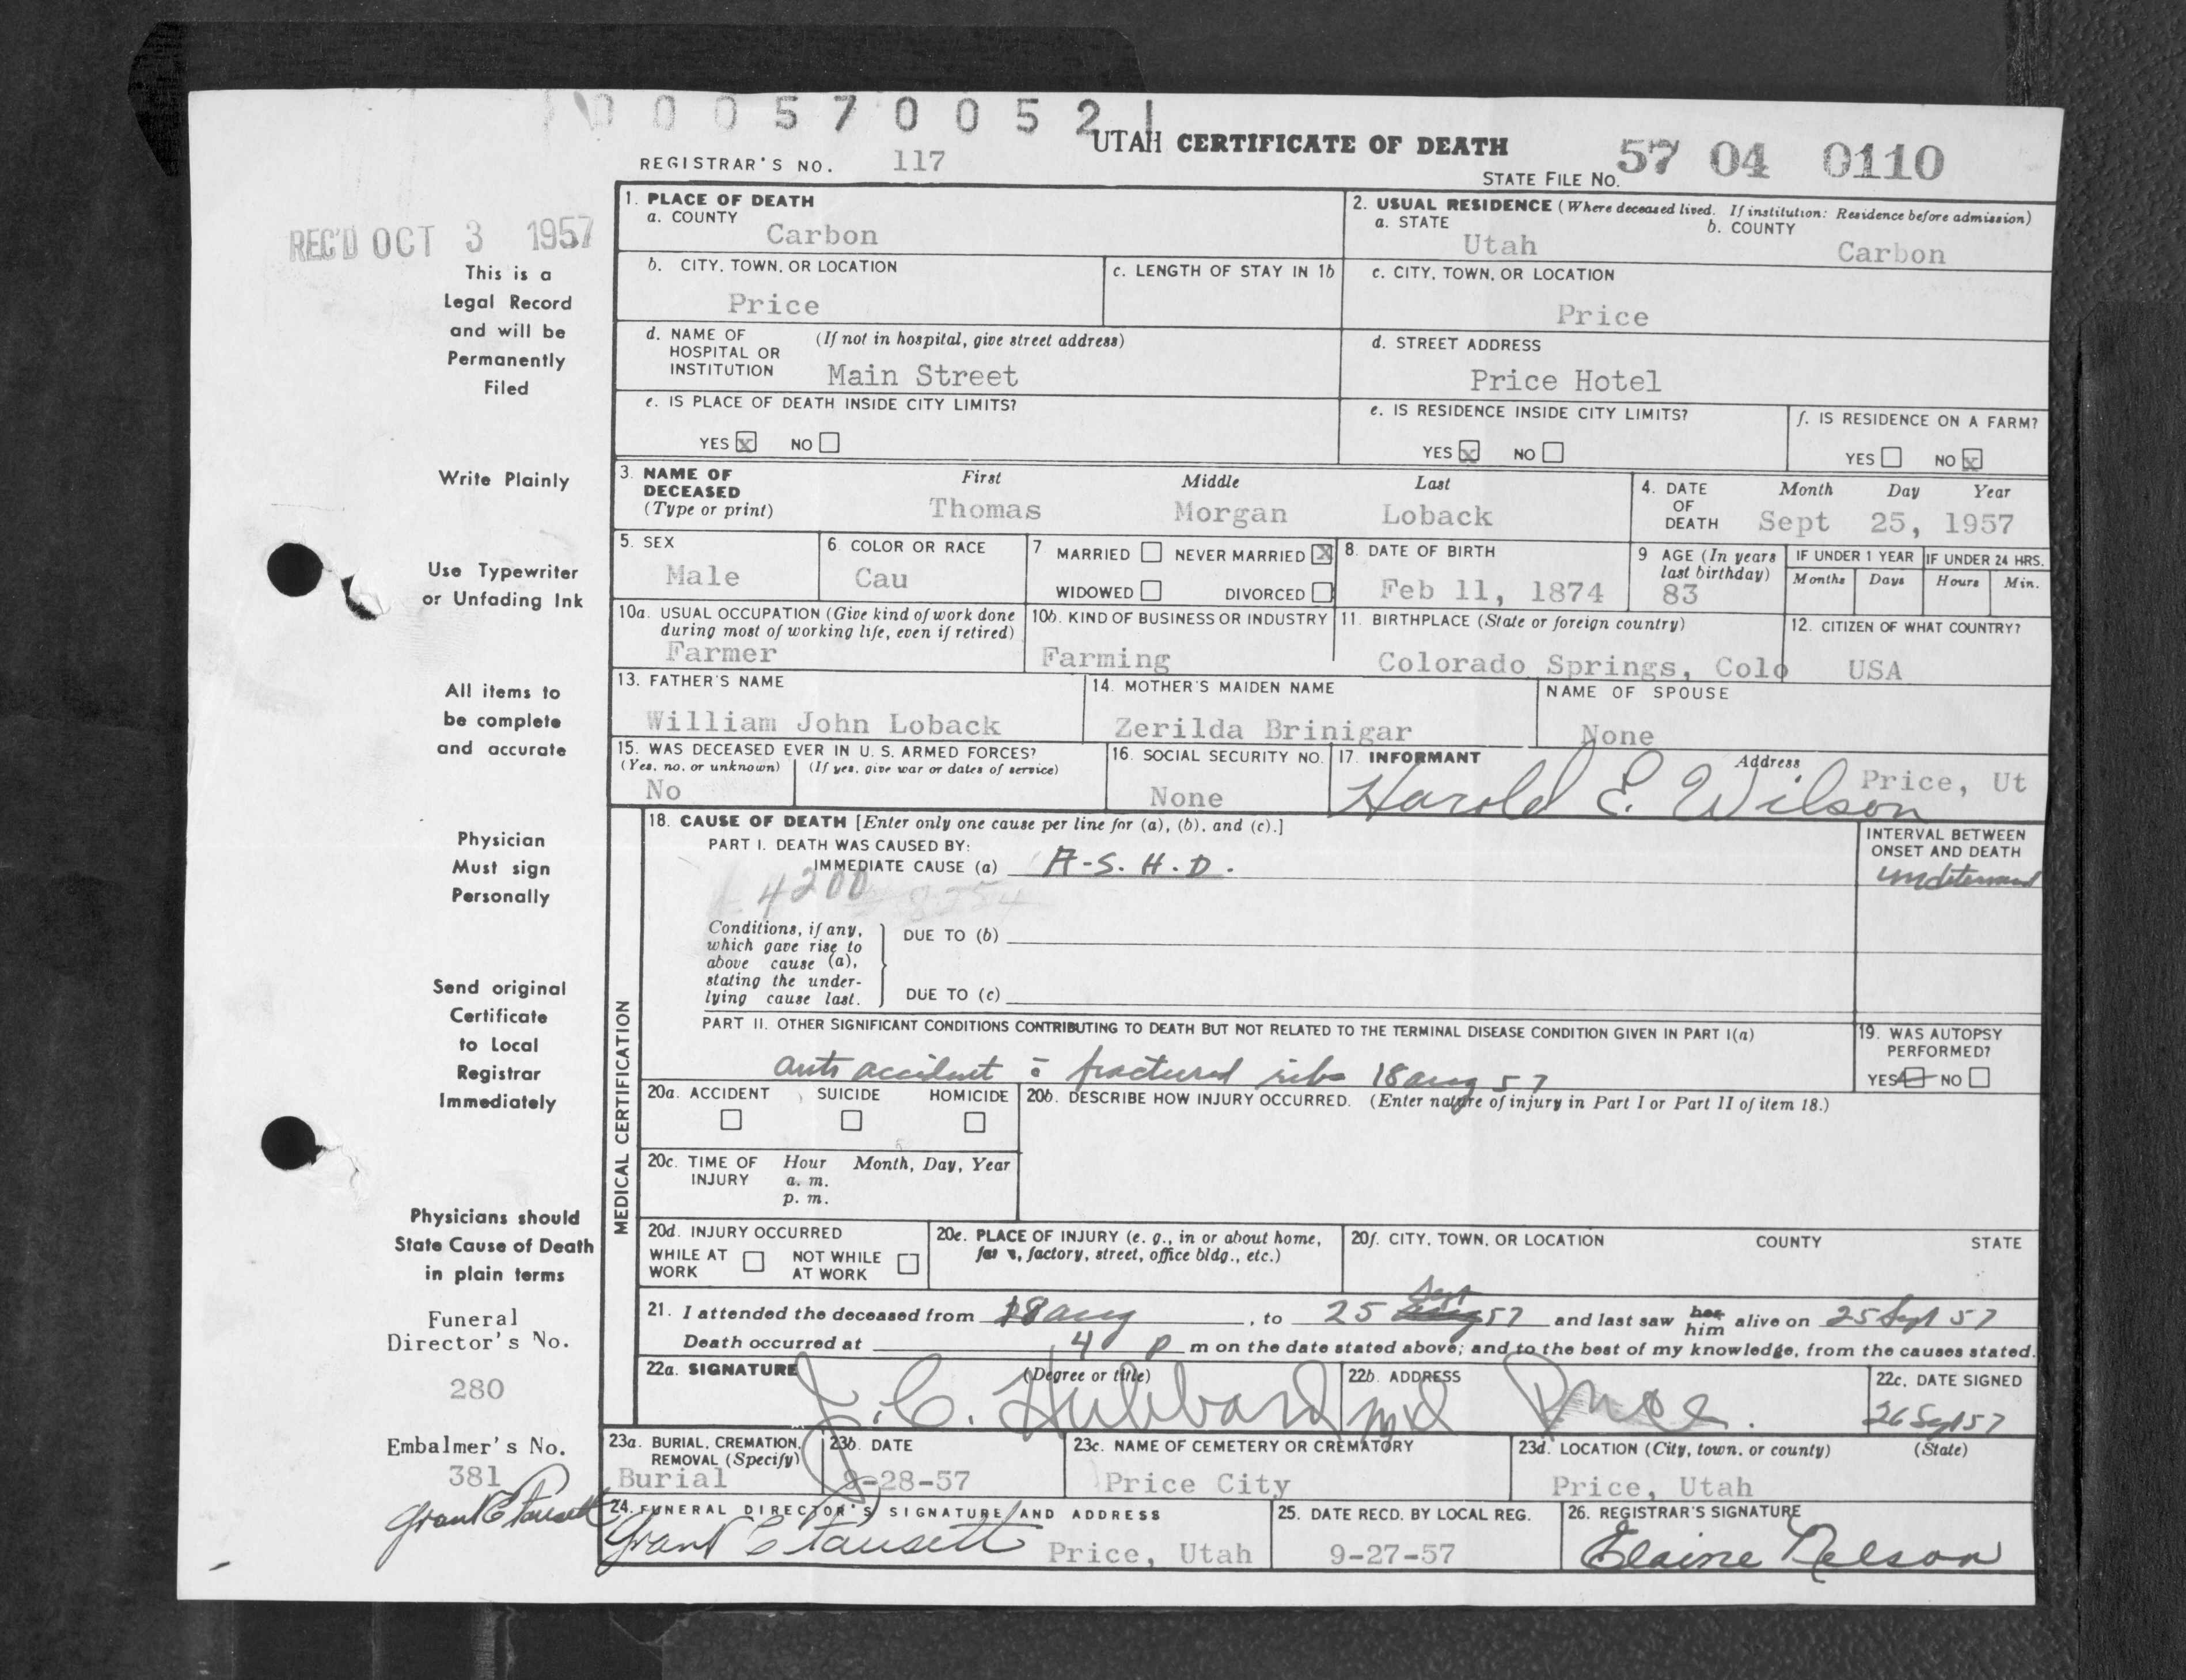 000570052
UTAH CERTIFICATE OF DEATH
REGISTRAR'S NO. 117
STATE FILE NO. 57 04 0110
REC'D OCT 3 1957
This is a
Legal Record
and will be
Permanently
Filed
Write Plainly
Use Typewriter
or Unfading Ink
All items to
be complete
and accurate
Physician
Must sign
Personally
Send original
Certificate
to Local
Registrar
Immediately
Physicians should
State Cause of Death
in plain terms
Funeral
Director's No.
280
Embalmer's No.
381
1. PLACE OF DEATH
a. COUNTY
Carbon
2. USUAL RESIDENCE (Where deceased lived. If institution: Residence before admission)
a. STATE b. COUNTY
Utah Carbon
b. CITY, TOWN, OR LOCATION
Price
c. LENGTH OF STAY IN 1b
c. CITY, TOWN, OR LOCATION
Price
d. NAME OF (If not in hospital, give street address)
HOSPITAL OR
INSTITUTION Main Street
d. STREET ADDRESS
Price Hotel
e. IS PLACE OF DEATH INSIDE CITY LIMITS?
YES x NO
e. IS RESIDENCE INSIDE CITY LIMITS?
YES x NO
f. IS RESIDENCE ON A FARM?
YES NO x
3. NAME OF First Middle Last
DECEASED
(Type or print) Thomas Morgan Loback
4. DATE Month Day Year
OF
DEATH Sept 25, 1957
5. SEX
Male
6. COLOR OR RACE
Cau
7 MARRIED NEVER MARRIED X
WIDOWED DIVORCED
8. DATE OF BIRTH
Feb 11, 1874
9 AGE (In years
last birthday)
83
IF UNDER 1 YEAR IF UNDER 24 HRS.
Months Days Hours Min.
10a. USUAL OCCUPATION (Give kind of work done
during most of working life, even if retired)
Farmer
10b. KIND OF BUSINESS OR INDUSTRY
Farming
11. BIRTHPLACE (State or foreign country)
Colorado Springs, Colo
12. CITIZEN OF WHAT COUNTRY?
USA
13. FATHER'S NAME
William John Loback
14. MOTHER'S MAIDEN NAME
Zerilda Brinigar
NAME OF SPOUSE
None
15. WAS DECEASED EVER IN U. S. ARMED FORCES?
(Yes, no, or unknown) (If yes, give war or dates of service)
No
16. SOCIAL SECURITY NO.
None
17. INFORMANT Address
Harold E. Wilson Price, Ut
MEDICAL CERTIFICATION
18. CAUSE OF DEATH [Enter only one cause per line for (a), (b), and (c).]
PART I. DEATH WAS CAUSED BY:
IMMEDIATE CAUSE (a) A-S. H. D.
4200
INTERVAL BETWEEN
ONSET AND DEATH
Conditions, if any,
which gave rise to
above cause (a),
stating the under-
lying cause last.
DUE TO (b)
DUE TO (c)
PART II. OTHER SIGNIFICANT CONDITIONS CONTRIBUTING TO DEATH BUT NOT RELATED TO THE TERMINAL DISEASE CONDITION GIVEN IN PART I(a)
auto accident c̄ fractured ribs 18 aug 57
19. WAS AUTOPSY
PERFORMED?
YES NO
20a. ACCIDENT SUICIDE HOMICIDE
20b. DESCRIBE HOW INJURY OCCURRED. (Enter nature of injury in Part I or Part II of item 18.)
20c. TIME OF Hour Month, Day, Year
INJURY a. m.
p. m.
20d. INJURY OCCURRED
WHILE AT NOT WHILE
WORK AT WORK
20e. PLACE OF INJURY (e. g., in or about home,
farm, factory, street, office bldg., etc.)
20f. CITY, TOWN, OR LOCATION COUNTY STATE
21. I attended the deceased from 18 aug, to 25 Sept 57 and last saw her him alive on 25 Sept 57
Death occurred at 4 p m on the date stated above; and to the best of my knowledge, from the causes stated.
22a. SIGNATURE (Degree or title)
J. C. Hubbard md
22b. ADDRESS
Price.
22c. DATE SIGNED
26 Sept 57
23a. BURIAL, CREMATION,
REMOVAL (Specify)
Burial
23b. DATE
9-28-57
23c. NAME OF CEMETERY OR CREMATORY
Price City
23d. LOCATION (City, town, or county) (State)
Price, Utah
24. FUNERAL DIRECTOR'S SIGNATURE AND ADDRESS
Price, Utah
25. DATE RECD. BY LOCAL REG.
9-27-57
26. REGISTRAR'S SIGNATURE
Elaine Nelson